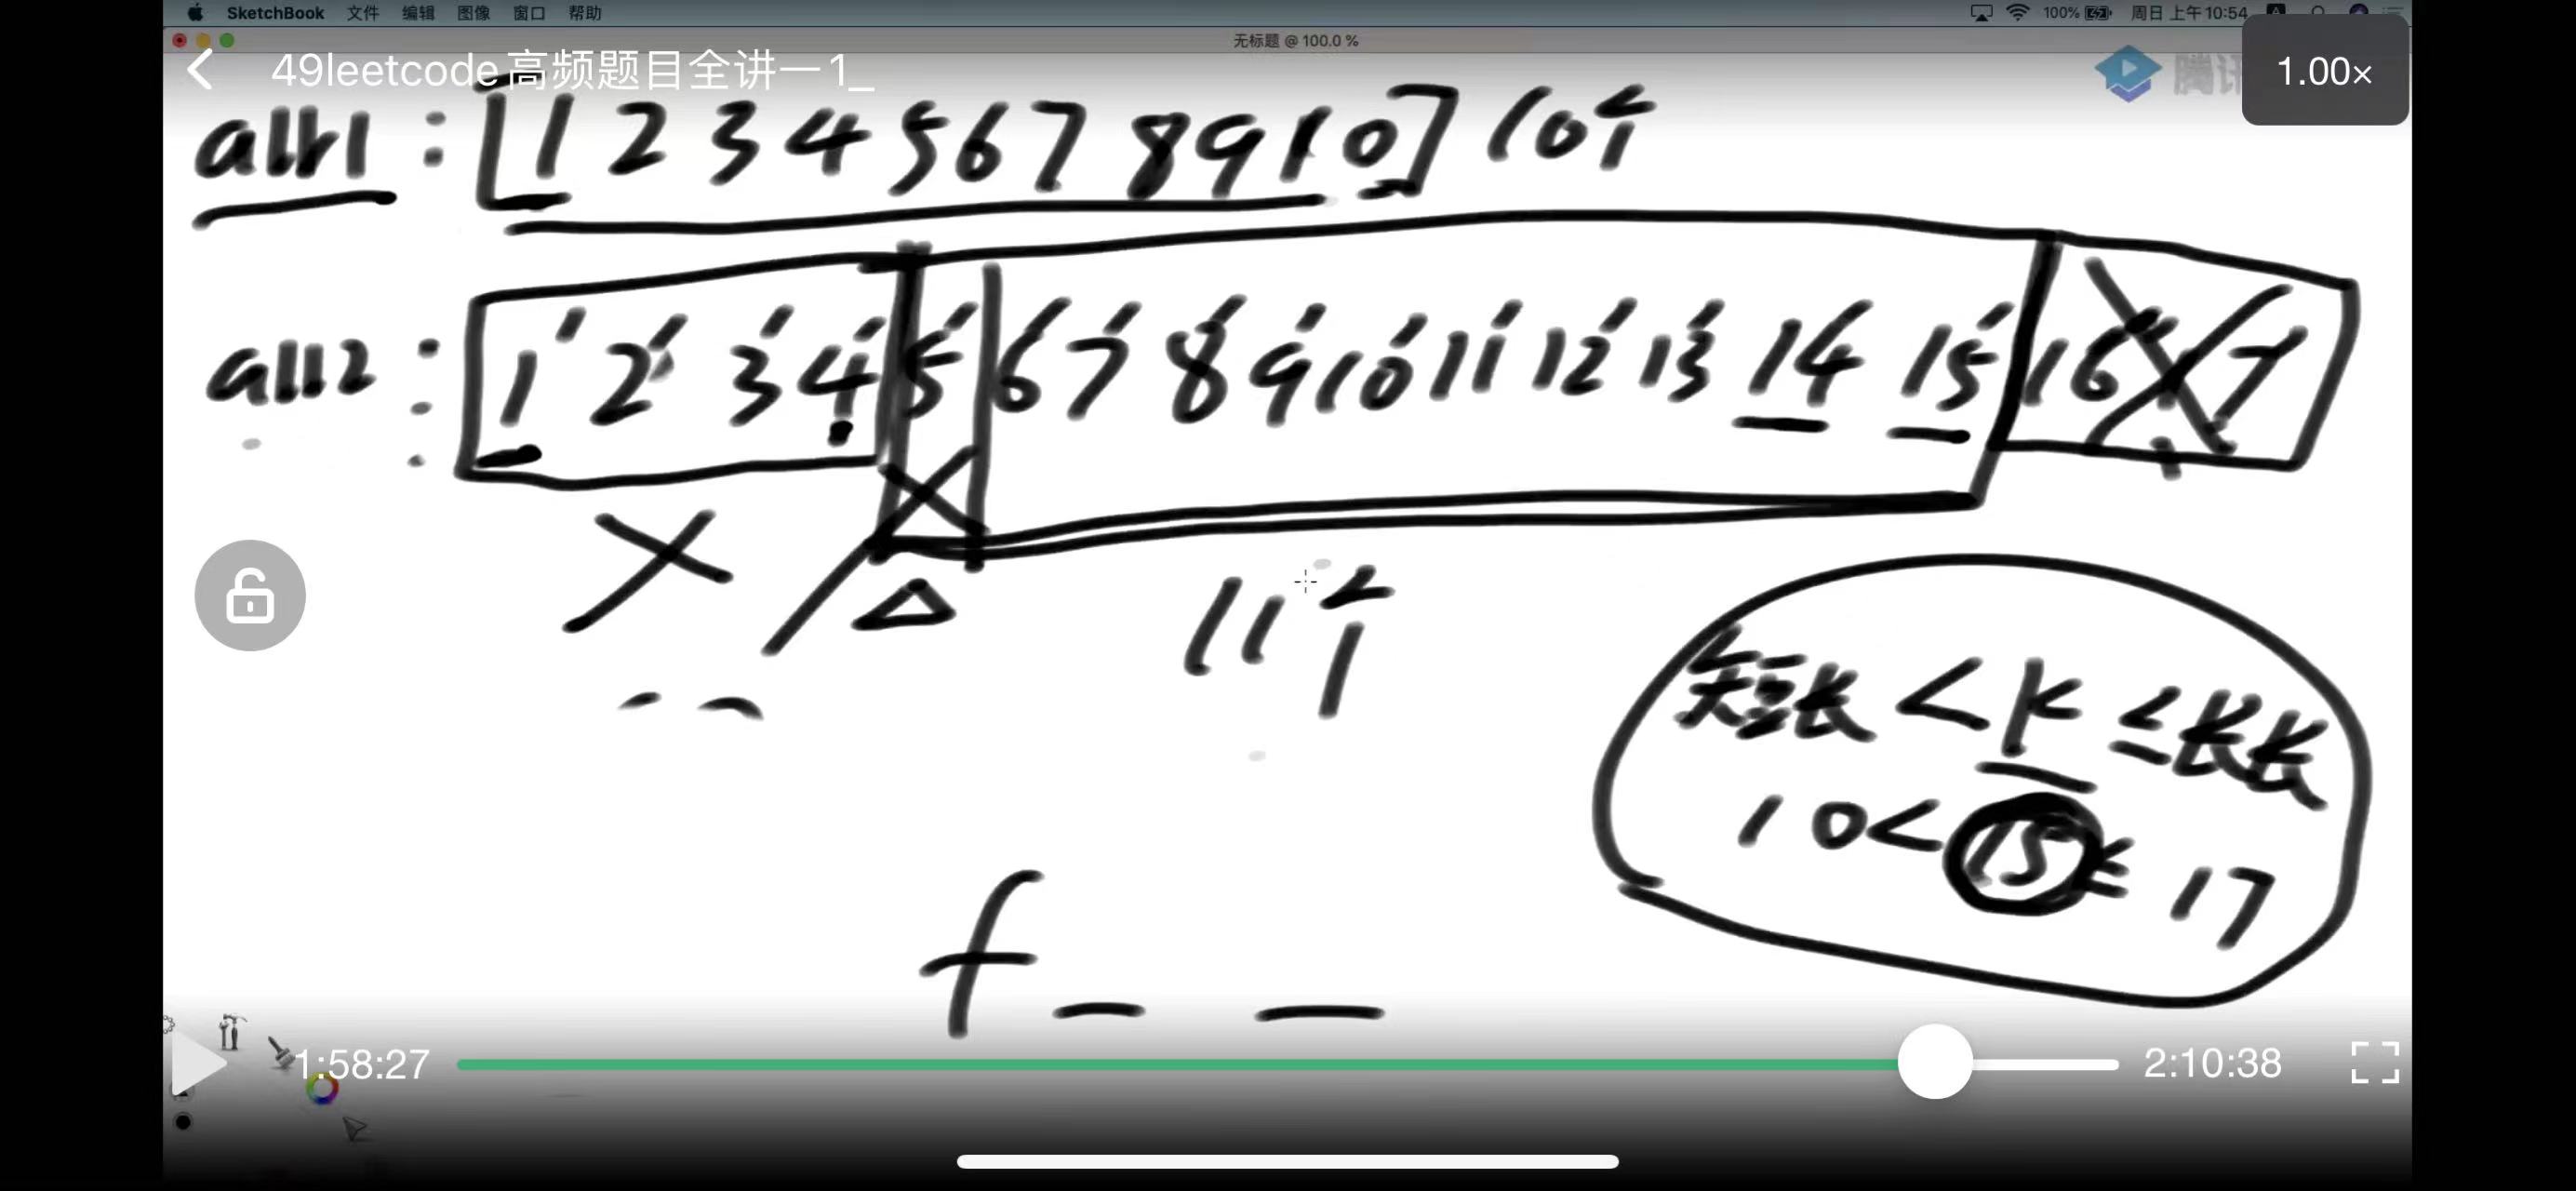 SketchBook 文件 编辑 图像 窗口 帮助
100% 周日上午10:54
无标题 @ 100.0 %
49leetcode高频题目全讲一1_
1.00×
腾讯
arr1 : [1 2 3 4 5 6 7 8 9 10] 10个
arr2 : 1' 2' 3' 4' 5' 6' 7' 8' 9' 10' 11' 12' 13' 14' 15' 16' 17'
11个
短长 < k ≤ 长长
10 < 15 ≤ 17
f
1:58:27
2:10:38